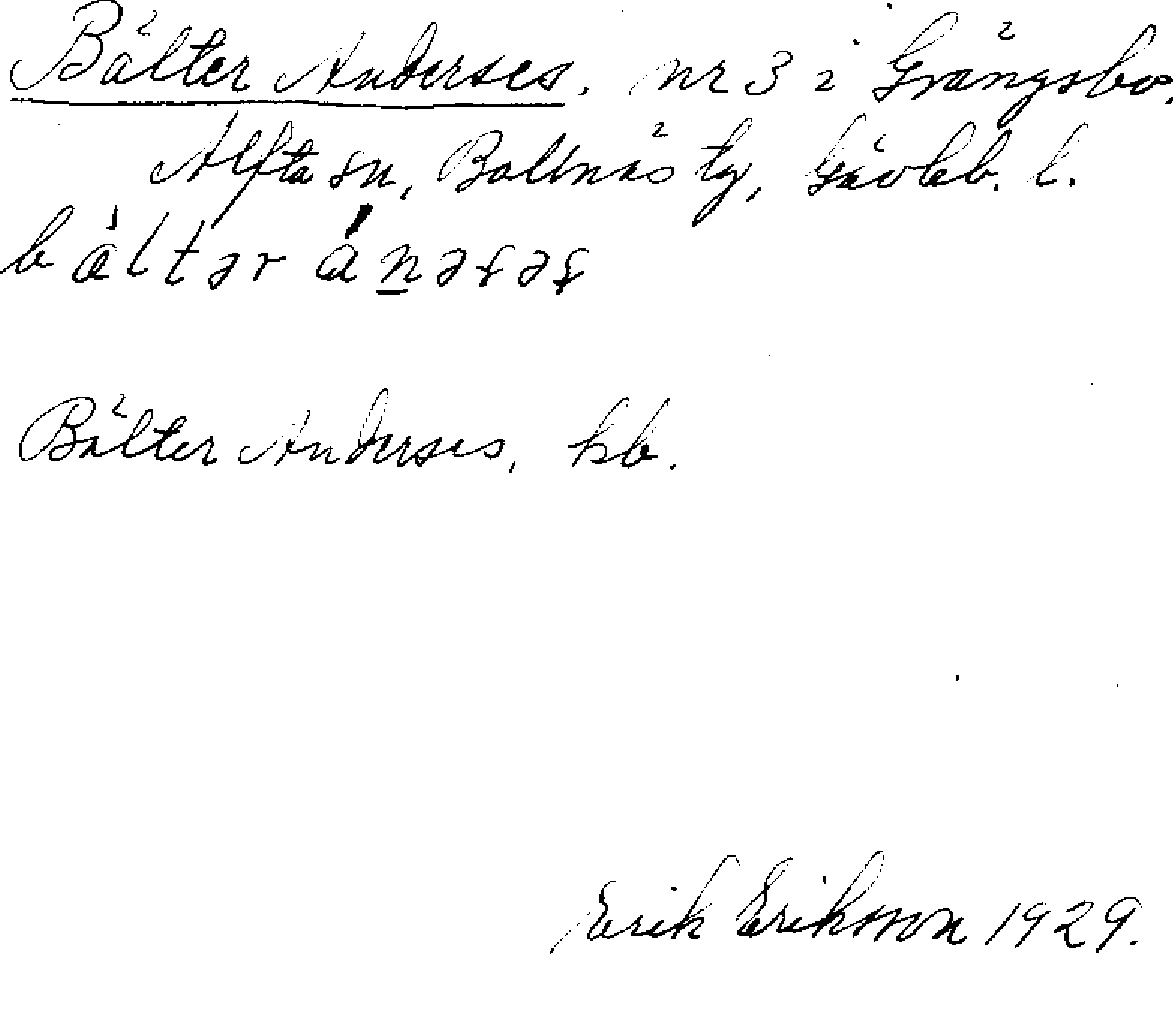 Bälter Anderses. nr 3 i Grängsbo.
Alfta sn, Bollnäs tg, Gävleb. l.
Bälter Anderses, kb.
Erik Eriksson 1929.